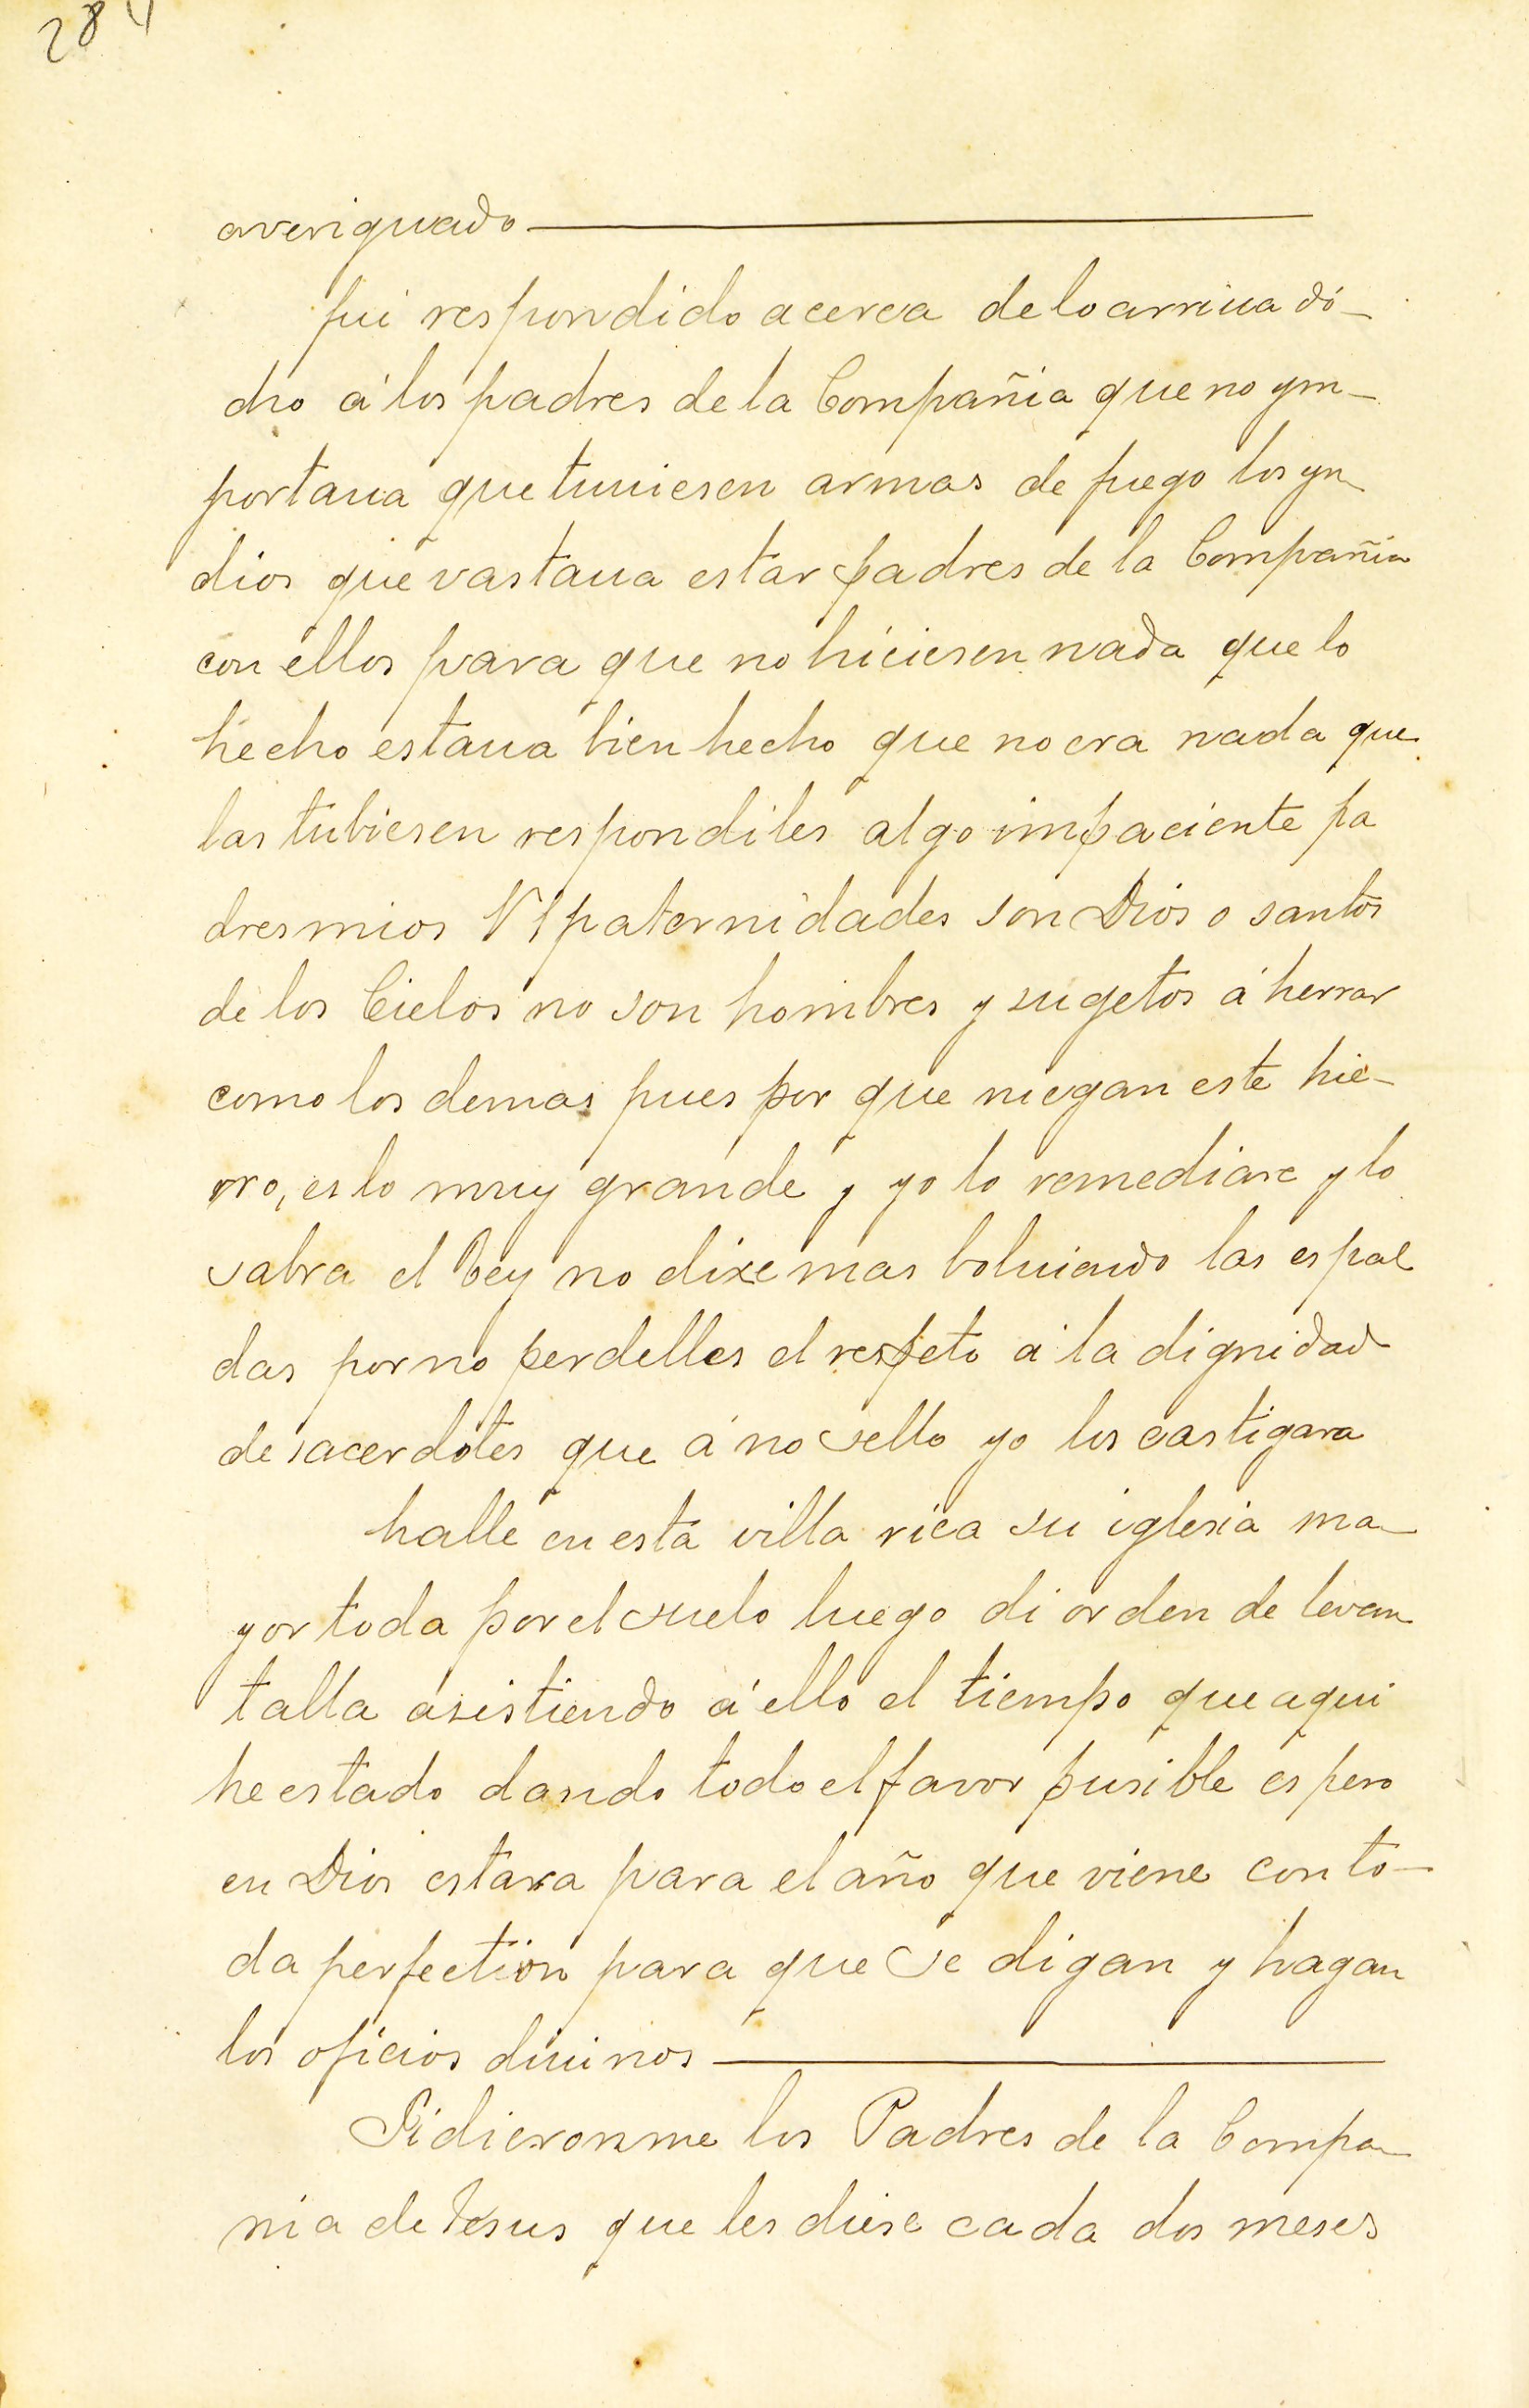 284
averiguado
fui respondido acerca de lo arriua di-
cho á los padres de la Compañia que no ym-
portaua que tuuiesen armas de fuego los yn
dios que vastaua estar padres de la Compañia
con ellos para que no hiciesen nada que lo
hecho estaua bien hecho que no era nada que
las tubiesen respondiles algo impaciente pa
dres mios paternidades son Dios o santos
de los Cielos no son hombres y sugetos á herrar
como los demas pues por que niegan este hie-
rro, eslo muy grande y yo lo remediare y lo
sabra el Rey no dixe mas boluiendo las espal
das por no perdelles el respeto á la dignidad
de sacerdotes que á no sello yo los castigara
halle en esta villa rica su iglesia ma-
yor toda por el suelo luego di orden de levan
talla asistiendo á ello el tiempo que aqui
he estado dando todo el favor pusible espero
en Dios estara para el año que viene con to-
da perfection para que se digan y hagan
los oficios diuinos
Pidieronme los Padres de la Compa-
nia de Jesus que les diese cada dos meses